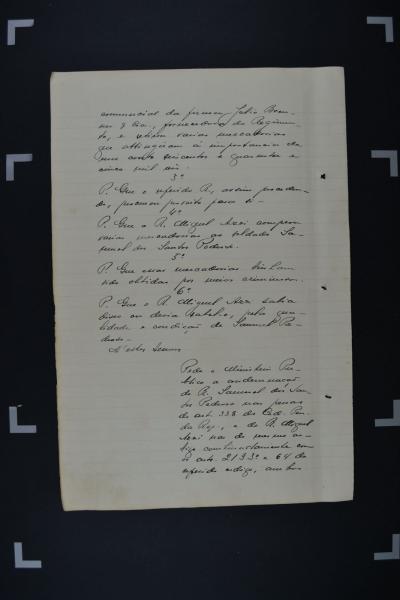 commercial da firma Julio Bren-
ner & Cia., fornecedoria do Regimen-
to, e retirou varias mercadorias
que attingiram á importancia de
um conto seiscentos e quarenta e
cinco mil réis.
3º
P. Que o referido R., assim proceden-
do, procurou proveito para si.
4º
P. Que o R. Miguel comprou
varias mercadorias ao soldado Sa-
muel dos Santos Pedroso.
5º
P. Que essas mercadorias tinham
sido obtidas por meios criminosos.
6º
P. Que o R. Miguel sabia
disso ou devia sabel-o, pela qua-
lidade e condição de Samuel Pe-
droso.
N'estes termos
Pede o Ministerio Pu-
blico a condemnação
do R. Samuel dos San-
tos Pedroso nas penas
do art. 338 do Cod. Pen.
da Rep., e do R. Miguel
nas do mesmo ar-
tigo combinadamente com
os arts. 21 § 3º e 64 do
referido codigo, ambos